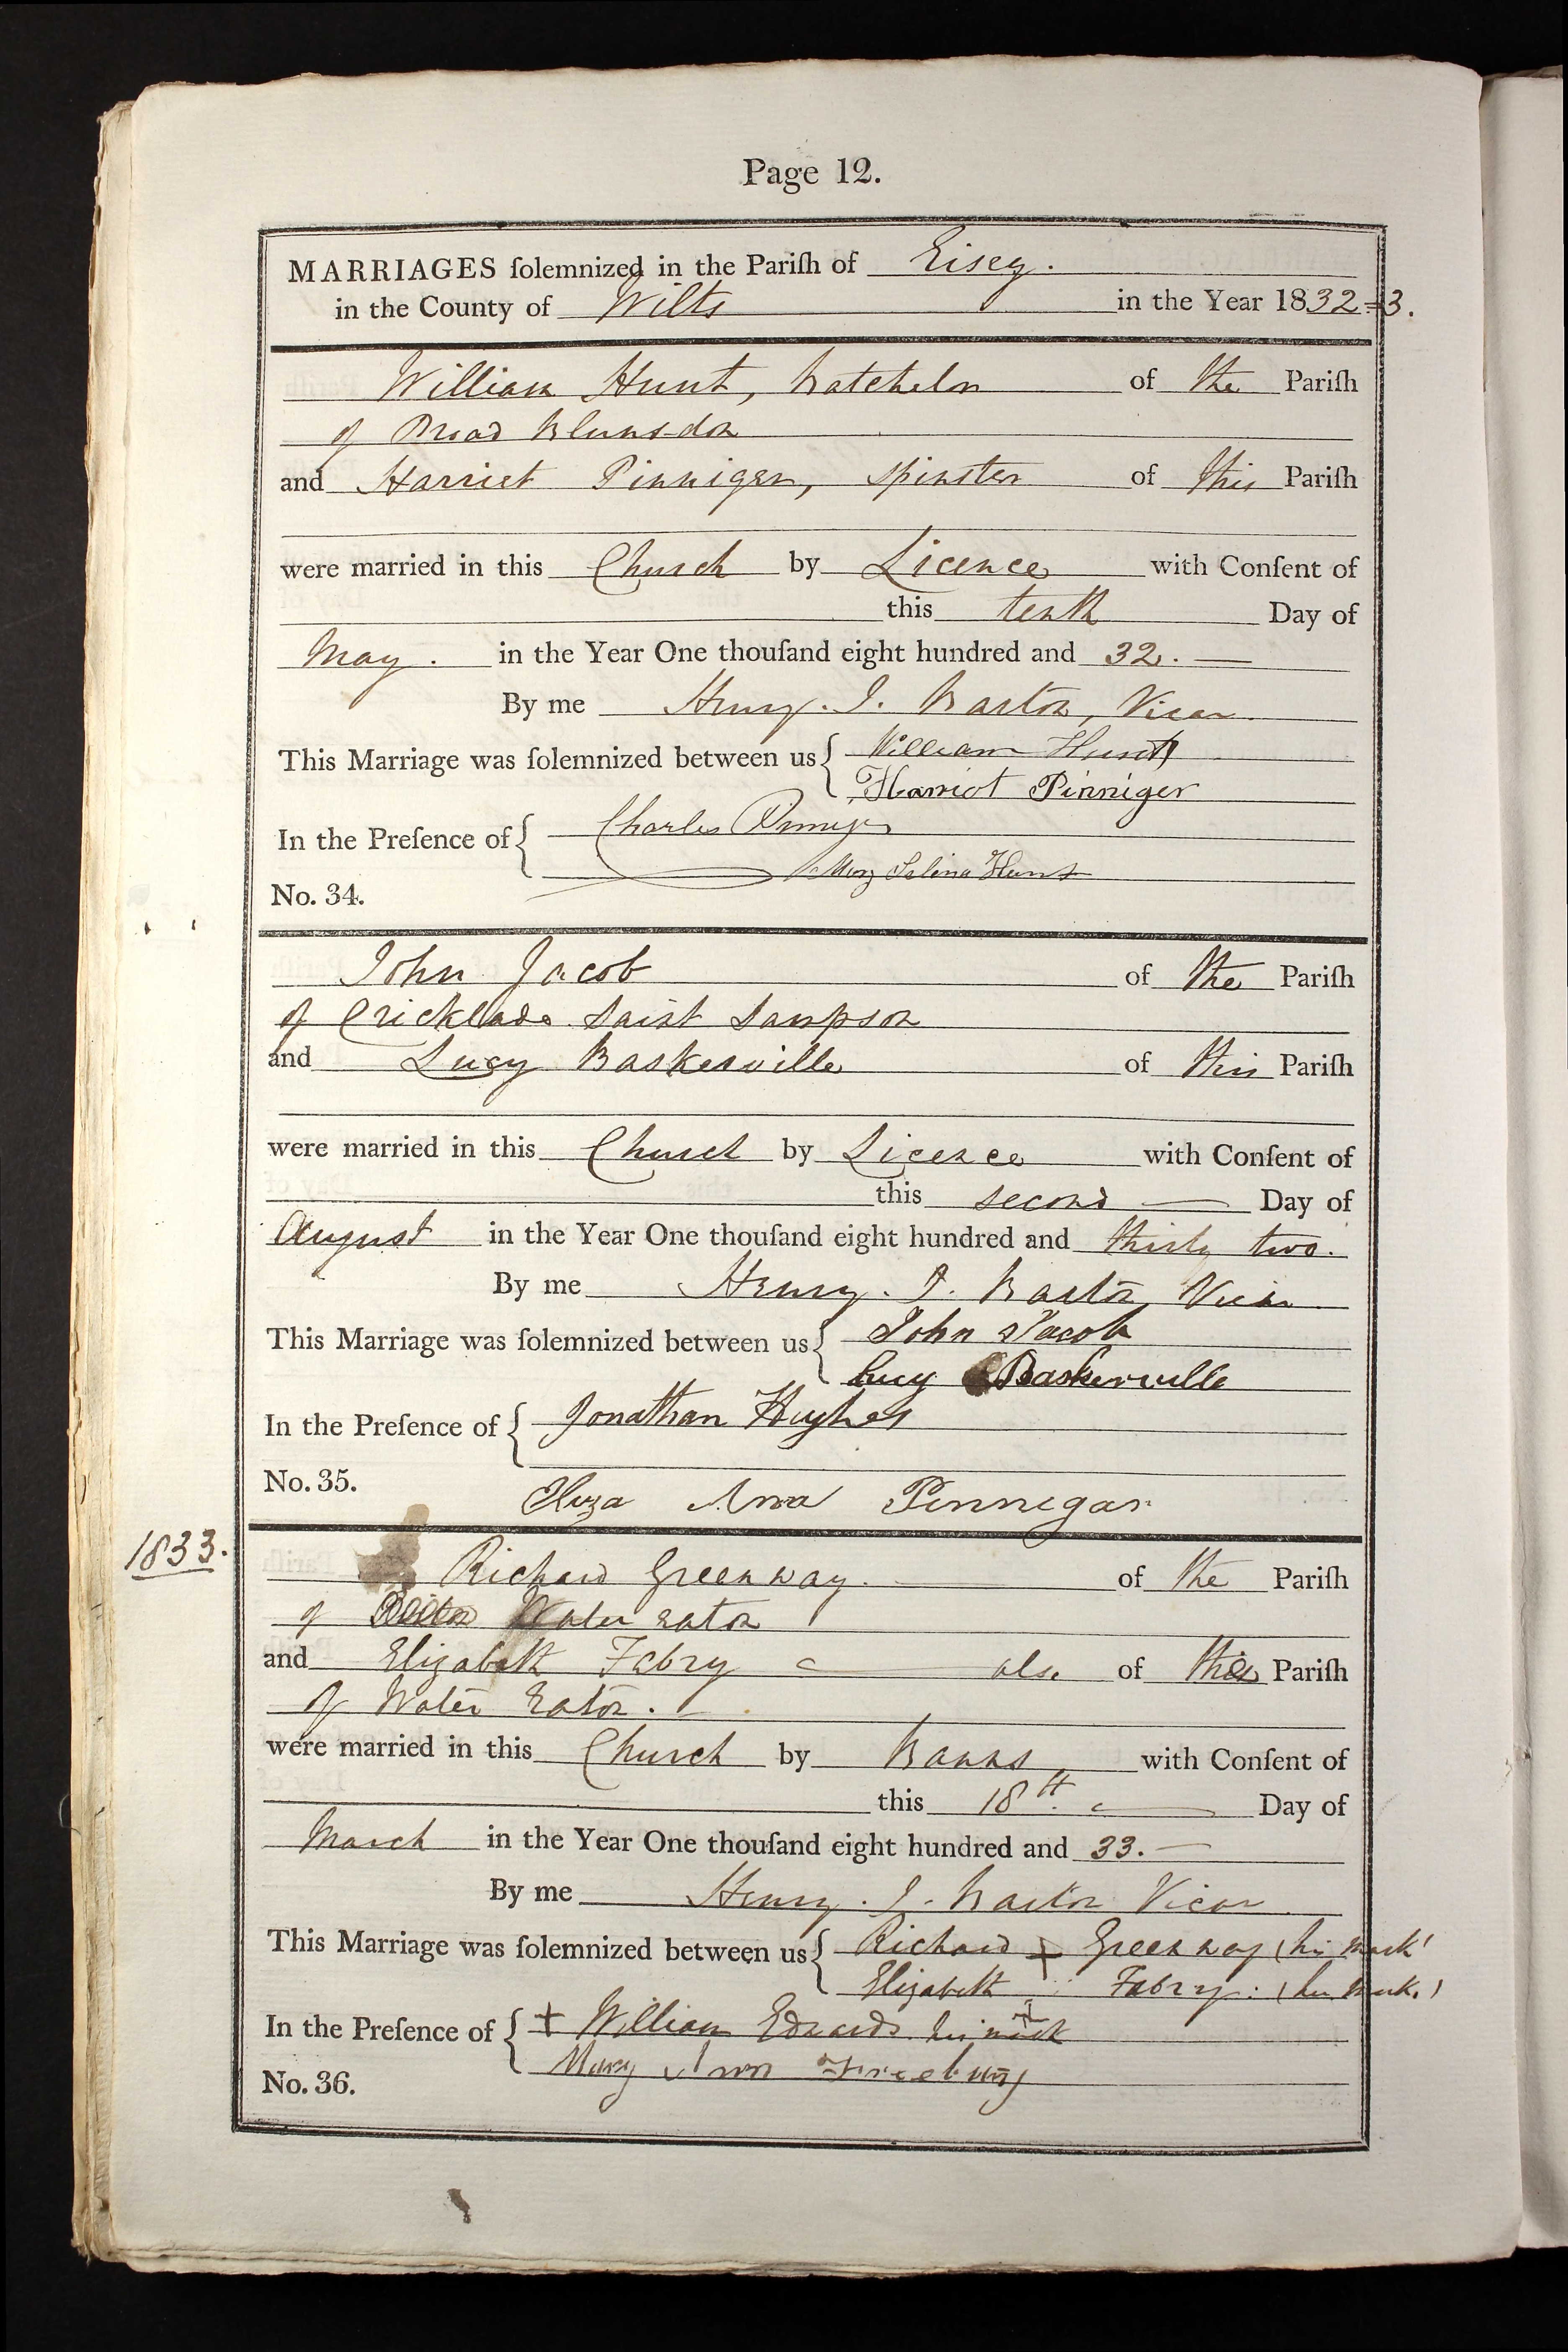 Page 12.
MARRIAGES ſolemnized in the Pariſh of Eisey.
in the County of Wilts in the Year 1832=3.
William Hunt, batchelor of the Pariſh
of Broad Blunsdon
and Harriet Pinniger, spinster of this Pariſh
were married in this Church by Licence with Conſent of
this tenth Day of
May. in the Year One thouſand eight hundred and 32. —
By me Henry. J. Barton, Vicar
This Marriage was ſolemnized between us { William Hunt
Harriot Pinniger
In the Preſence of { Charles Pinniger
Mary Selina Hunt
No. 34.
John Jacob of the Pariſh
of Cricklade Saint Sampson
and Lucy Baskerville of this Pariſh
were married in this Church by Licence with Conſent of
this second — Day of
August in the Year One thouſand eight hundred and thirty two.
By me Henry. J. Barton Vicar
This Marriage was ſolemnized between us { John Jacob
Lucy Baskerville
In the Preſence of { Jonathan Hughes
No. 35.
Eliza Ann Pinnegar
1833.
Richard Greenway. of the Pariſh
of Water Eaton
and Elizabeth Febry — also of the Pariſh
of Water Eaton.
were married in this Church by Banns with Conſent of
this 18th. — Day of
March in the Year One thouſand eight hundred and 33. —
By me Henry. J. Barton Vicar
This Marriage was ſolemnized between us { Richard + Greenway (his mark)
Elizabeth + Febry. (her mark.)
In the Preſence of { + William Edwards his mark
Mary Ann
No. 36.